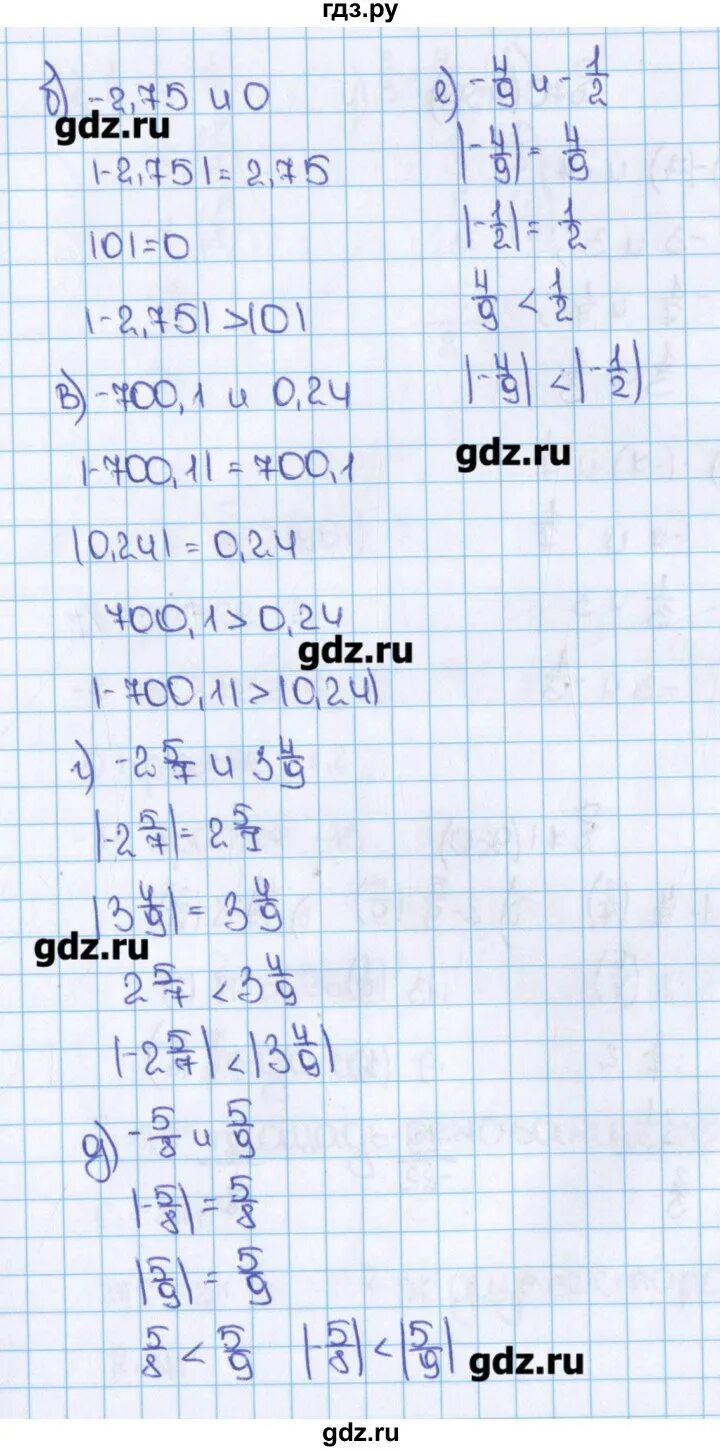 гдз.ру
б) -2,75 и 0
gdz.ru
|-2,75| = 2,75
|0| = 0
|-2,75| > |0|
в) -700,1 и 0,24
|-700,1| = 700,1
|0,24| = 0,24
700,1 > 0,24
gdz.ru
|-700,1| > |0,24|
г) -2 5/7 и 3 4/9
|-2 5/7| = 2 5/7
|3 4/9| = 3 4/9
gdz.ru
2 5/7 < 3 4/9
|-2 5/7| < |3 4/9|
д) -5/8 и 5/9
|-5/8| = 5/8
|5/9| = 5/9
5/8 < 5/9 |-5/8| < |5/9|
gdz.ru
е) -4/9 и -1/2
|-4/9| = 4/9
|-1/2| = 1/2
4/9 < 1/2
|-4/9| < |-1/2|
gdz.ru
gdz.ru